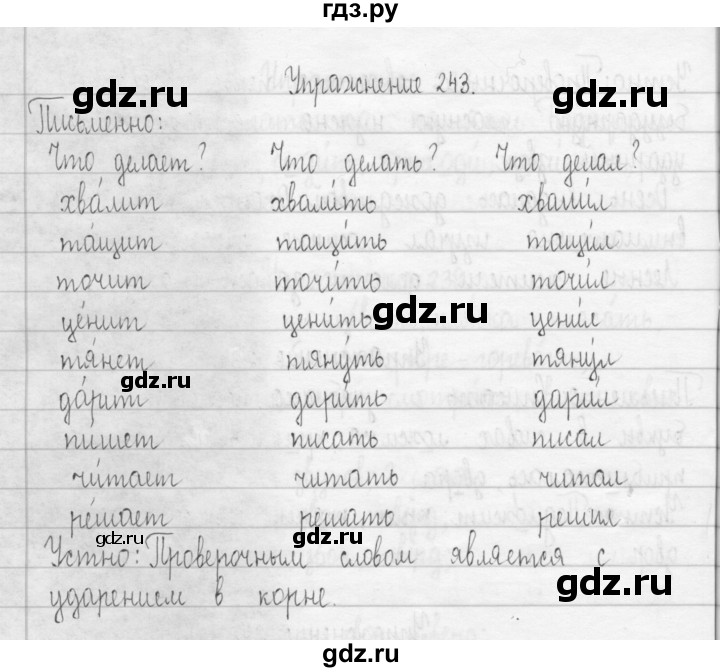 гдз.ру
Упражнение 243.
gdz.ru gdz.ru
Письменно:
Что делает? Что делать? Что делал?
хва́лит хвали́ть хвали́л
та́щит тащи́ть тащи́л
точит точи́ть точи́л
gdz.ru
це́нит цени́ть цени́л
тя́нет тяну́ть тяну́л
gdz.ru
да́рит дари́ть дарил
пишет писать писал
чи́тает читать читал
ре́шает решать решил
gdz.ru
Устно: Проверочным словом является с
gdz.ru
ударением в корне.
gdz.ru